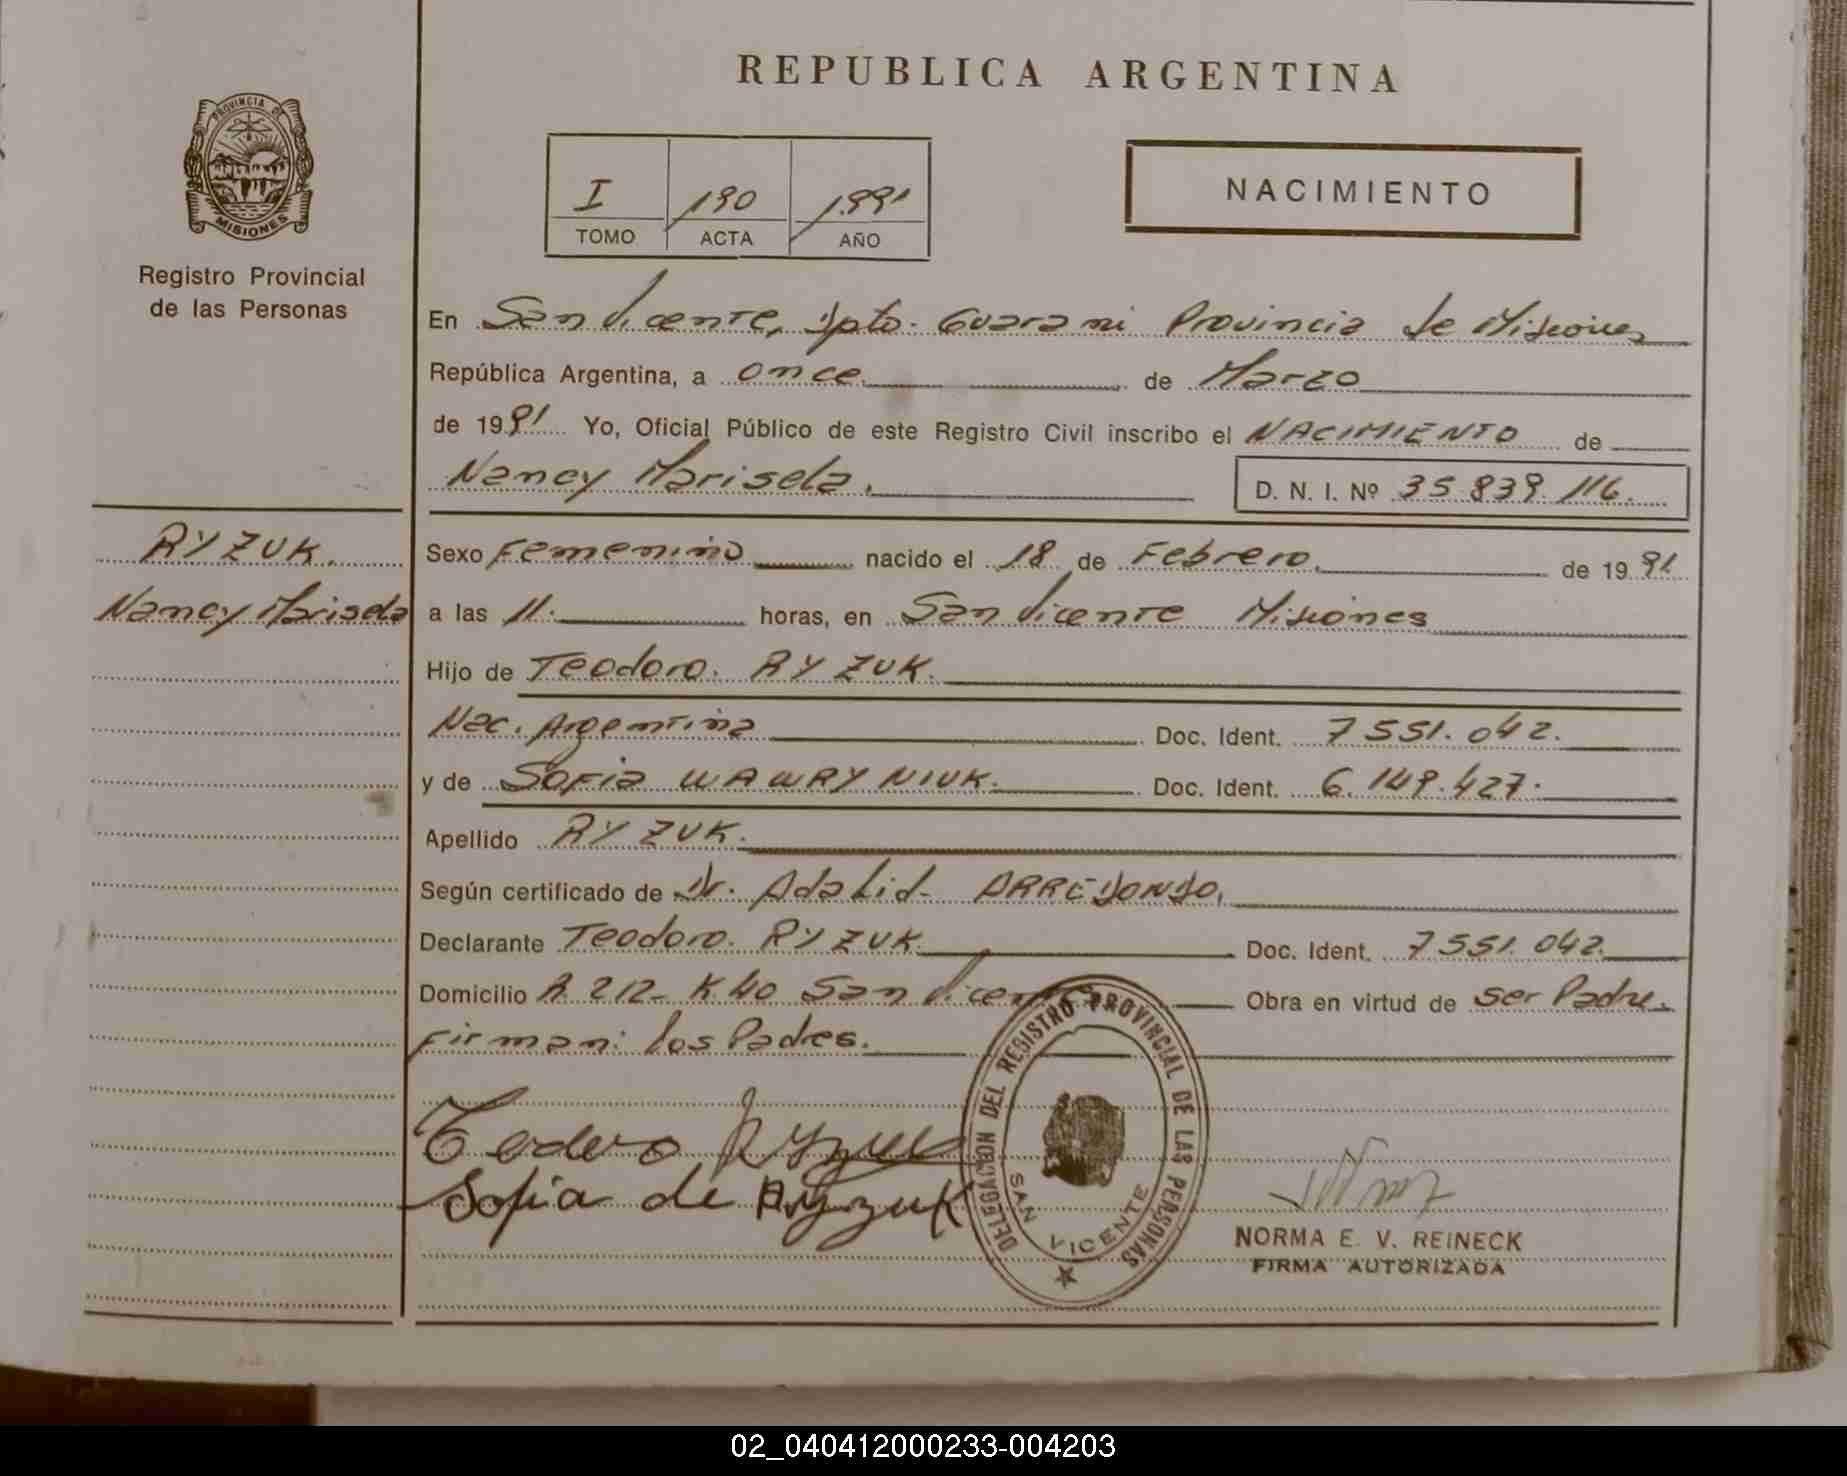 REPUBLICA ARGENTINA
PROVINCIA DE
MISIONES
Registro Provincial
de las Personas
I 190 1.991
TOMO ACTA AÑO
NACIMIENTO
En San Vicente, Dpto. Guarani Provincia de Misiones
República Argentina, a once de Marzo
de 1991 Yo, Oficial Público de este Registro Civil inscribo el NACIMIENTO de
Nancy Marisela. D. N. I. Nº 35.839.116.
RYZUK.
Nancy Marisela
Sexo Femenino nacido el 18 de Febrero. de 1991
a las 11. horas, en San Vicente Misiones
Hijo de Teodoro. RYZUK.
Nac. Argentina Doc. Ident. 7551.042.
y de Sofia WAWRYNIUK. Doc. Ident. 6.149.427.
Apellido RYZUK.
Según certificado de Dr. Adalid ARREDONDO.
Declarante Teodoro. RYZUK Doc. Ident. 7551.042.
Domicilio R. 212- K40 San Vicente Obra en virtud de ser Padre.
Firman: los Padres.
Teodoro Ryzuk
Sofia de Ryzuk
DELEGACION DEL REGISTRO PROVINCIAL DE LAS PERSONAS
SAN VICENTE
NORMA E. V. REINECK
FIRMA AUTORIZADA
02_040412000233-004203